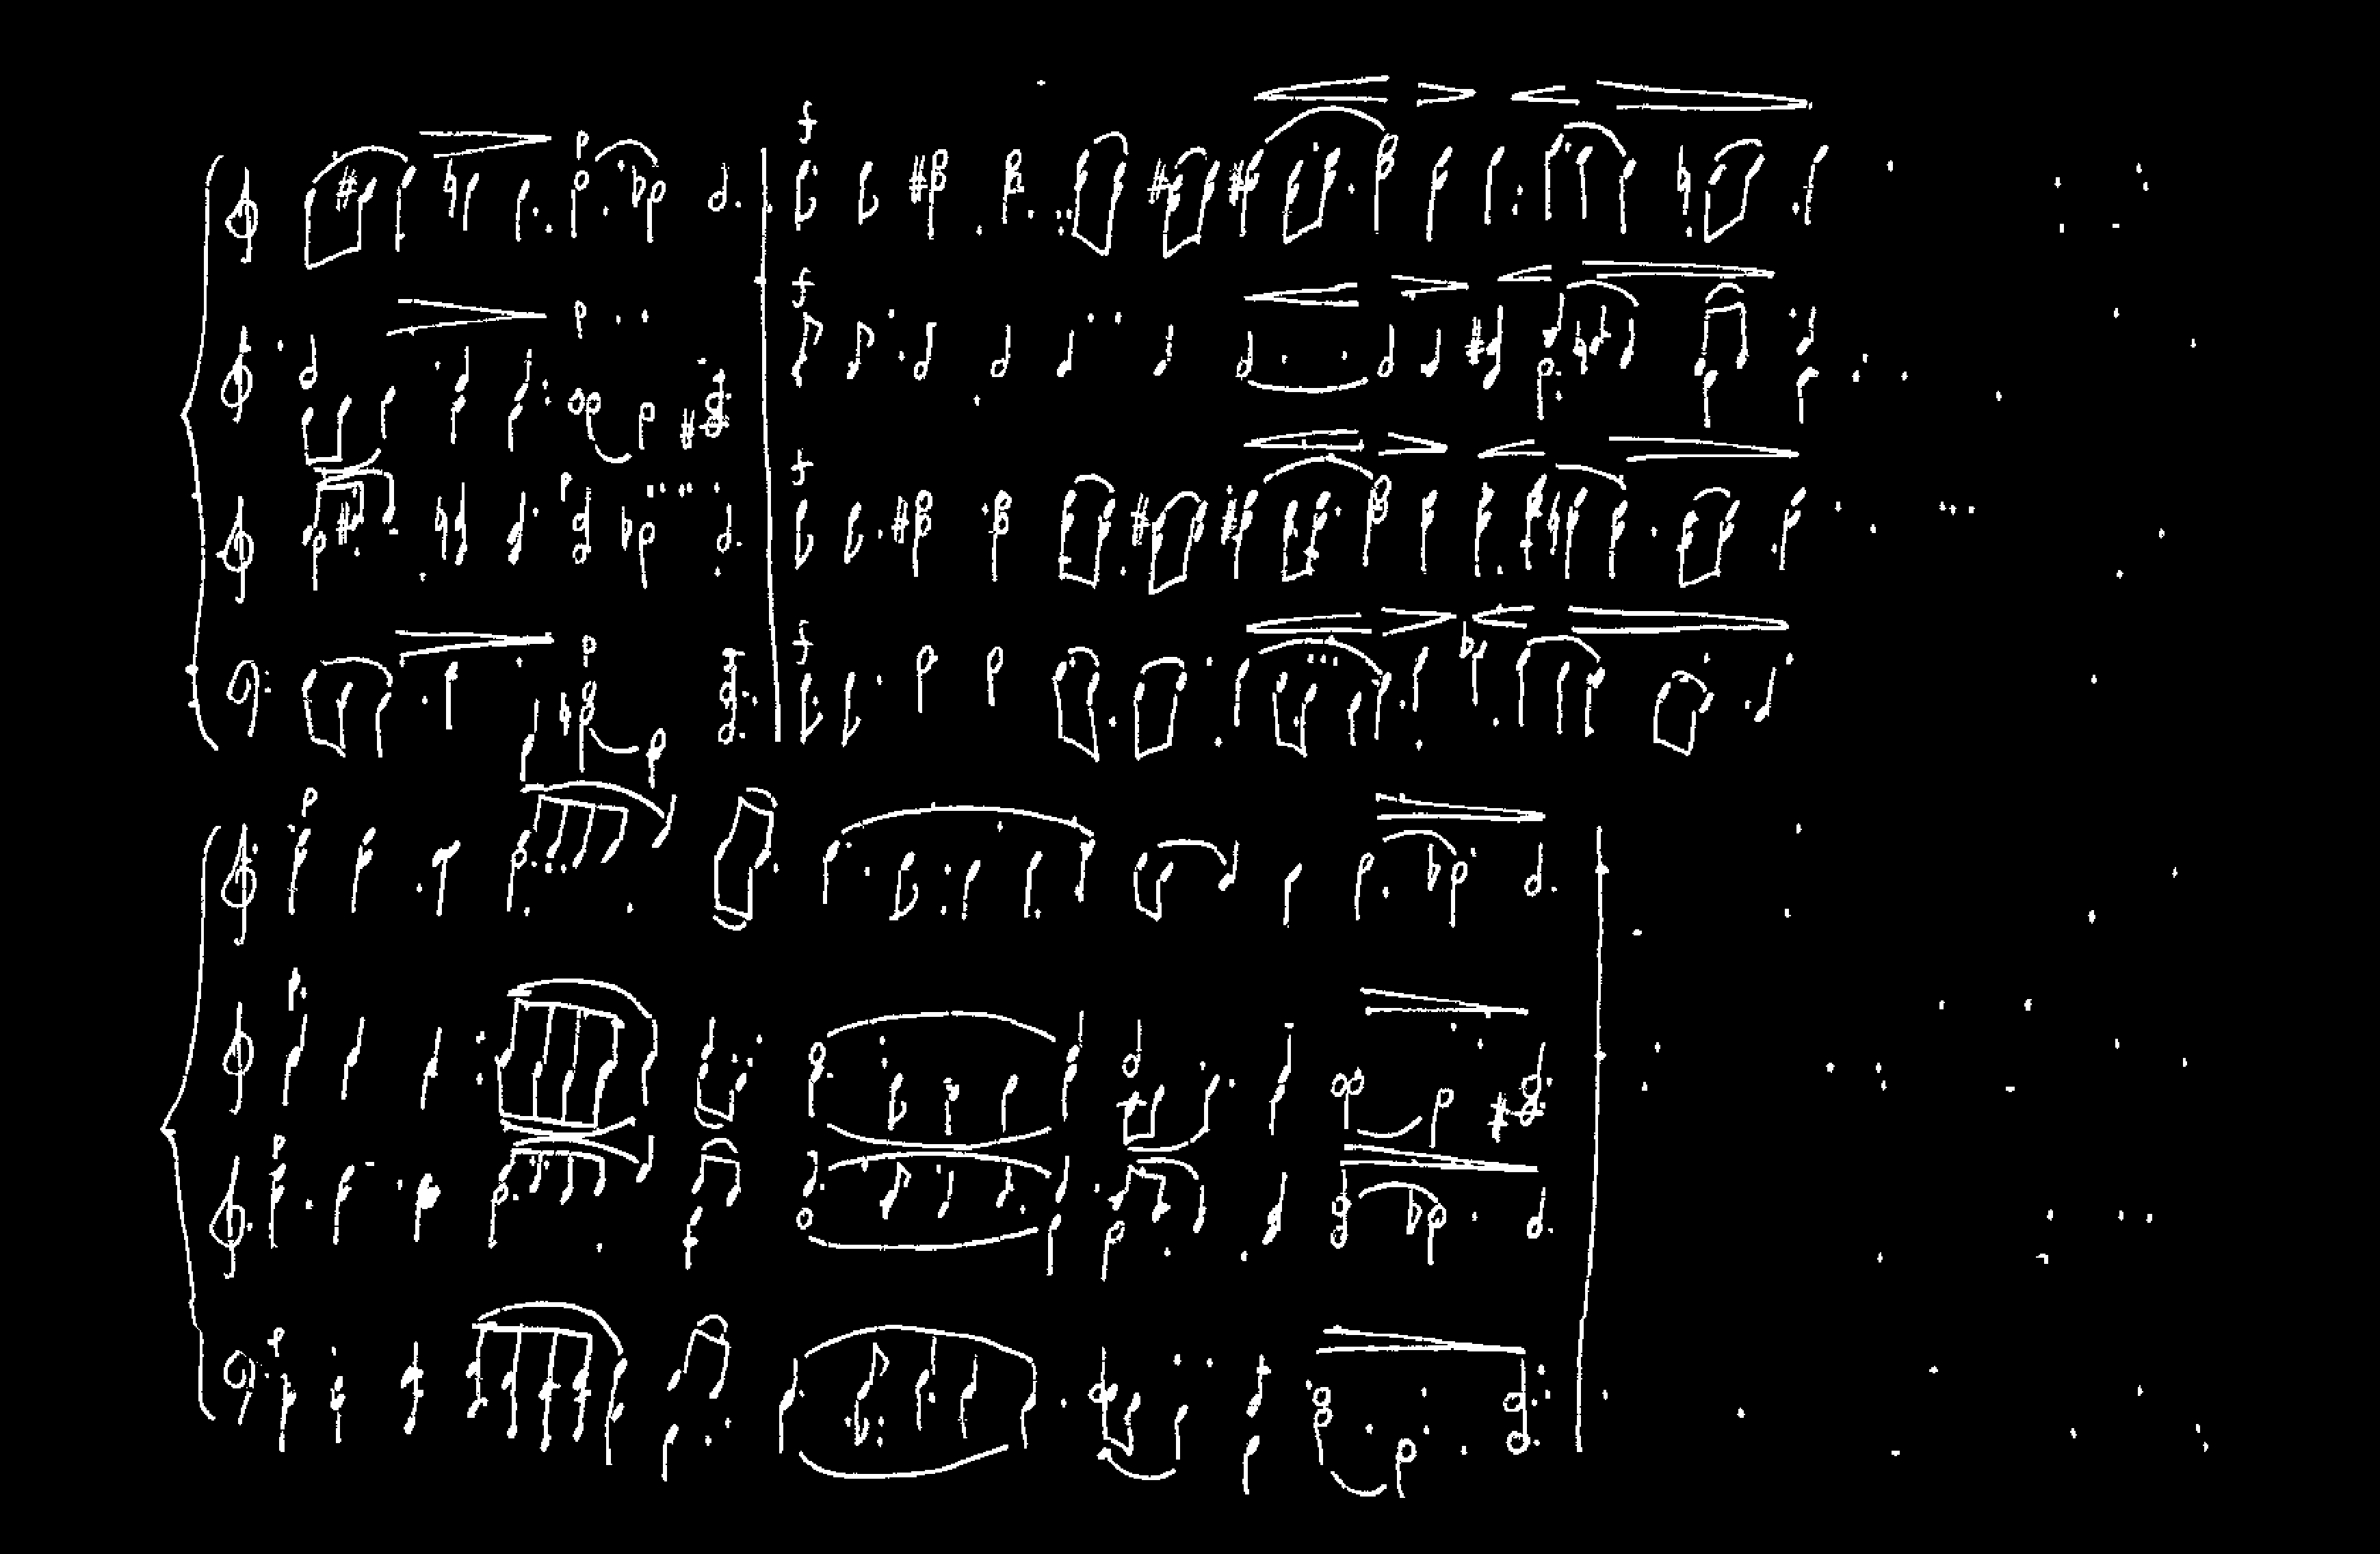 p
f
p
f
f
p
f
p
p
p
p
p